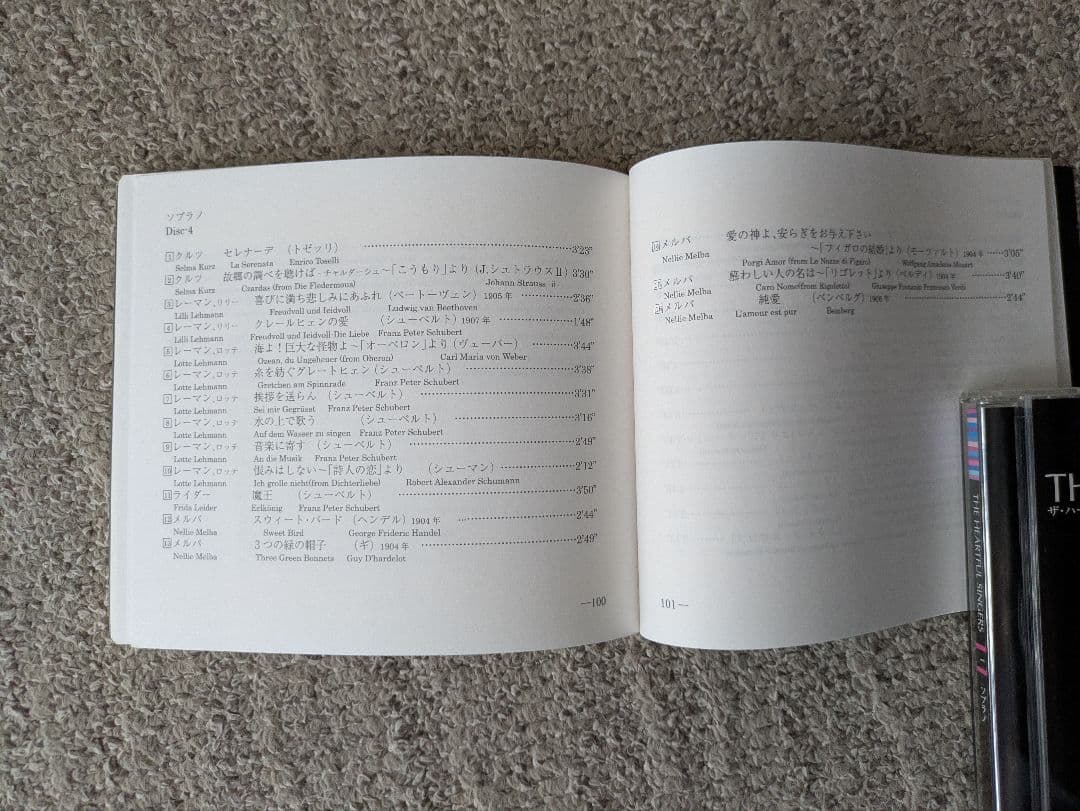 ソプラノ
Disc-4
1 クルツ セレナーデ （トゼッリ） 3'23"
Selma Kurz La Serenata Enrico Toselli
2 クルツ 故郷の調べを聴けば－チャルダーシュ～「こうもり」より（J.シュトラウスII） 3'30"
Selma Kurz Czardas (from Die Fledermous) Johann Strauss ii
3 レーマン、リリー 喜びに満ち悲しみにあふれ（ベートーヴェン）1905年 2'36"
Lilli Lehmann Freudvoll und leidvoll Ludwig van Beethoven
4 レーマン、リリー クレールヒェンの愛 （シューベルト）1907年 1'48"
Lilli Lehmann Freudvoll und leidvoll-Die Liebe Franz Peter Schubert
5 レーマン、ロッテ 海よ！巨大な怪物よ～「オーベロン」より（ヴェーバー） 3'44"
Lotte Lehmann Ozean, du Ungeheuer (from Oberon) Carl Maria von Weber
6 レーマン、ロッテ 糸を紡ぐグレートヒェン（シューベルト） 3'38"
Lotte Lehmann Gretchen am Spinnrade Franz Peter Schubert
7 レーマン、ロッテ 挨拶を送らん （シューベルト） 3'31"
Lotte Lehmann Sei mir Gegrüsst Franz Peter Schubert
8 レーマン、ロッテ 水の上で歌う （シューベルト） 3'16"
Lotte Lehmann Auf dem Wasser zu singen Franz Peter Schubert
9 レーマン、ロッテ 音楽に寄す （シューベルト） 2'49"
Lotte Lehmann An die Musik Franz Peter Schubert
10 レーマン、ロッテ 恨みはしない～「詩人の恋」より （シューマン） 2'12"
Lotte Lehmann Ich grolle nicht(from Dichterliebe) Robert Alexander Schumann
11 ライダー 魔王 （シューベルト） 3'50"
Frida Leider Erlkönig Franz Peter Schubert
12 メルバ スウィート・バード （ヘンデル）1904年 2'44"
Nellie Melba Sweet Bird George Frideric Handel
13 メルバ 3つの緑の帽子 （ギ）1904年 2'49"
Nellie Melba Three Green Bonnets Guy D'hardelot
—100
14 メルバ 愛の神よ、安らぎをお与え下さい
～「フィガロの結婚」より（モーツァルト）1904年 3'05"
Nellie Melba Porgi Amor (from Le Nozze di Figaro) Wolfgang Amadeus Mozart
15 メルバ 慕わしい人の名は～「リゴレット」より（ベルディ）1904年 3'40"
Nellie Melba Caro Nome(from Rigoletto) Giuseppe Fortunio Francesco Verdi
メルバ 純愛 （ベンベルグ）1906年 2'44"
Nellie Melba L'amour est pur Bemberg
101—
TH
ザ・ハー
THE HEARTFUL SINGERS
ソプラノ